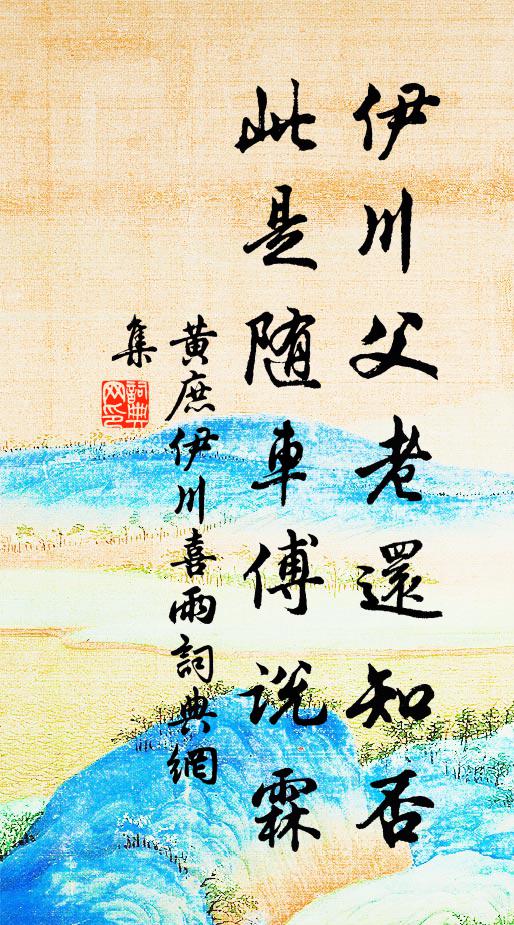 伊川父老還知否
此是随車傅說霖
黃庶伊川喜雨詞典網
集
詞典網印